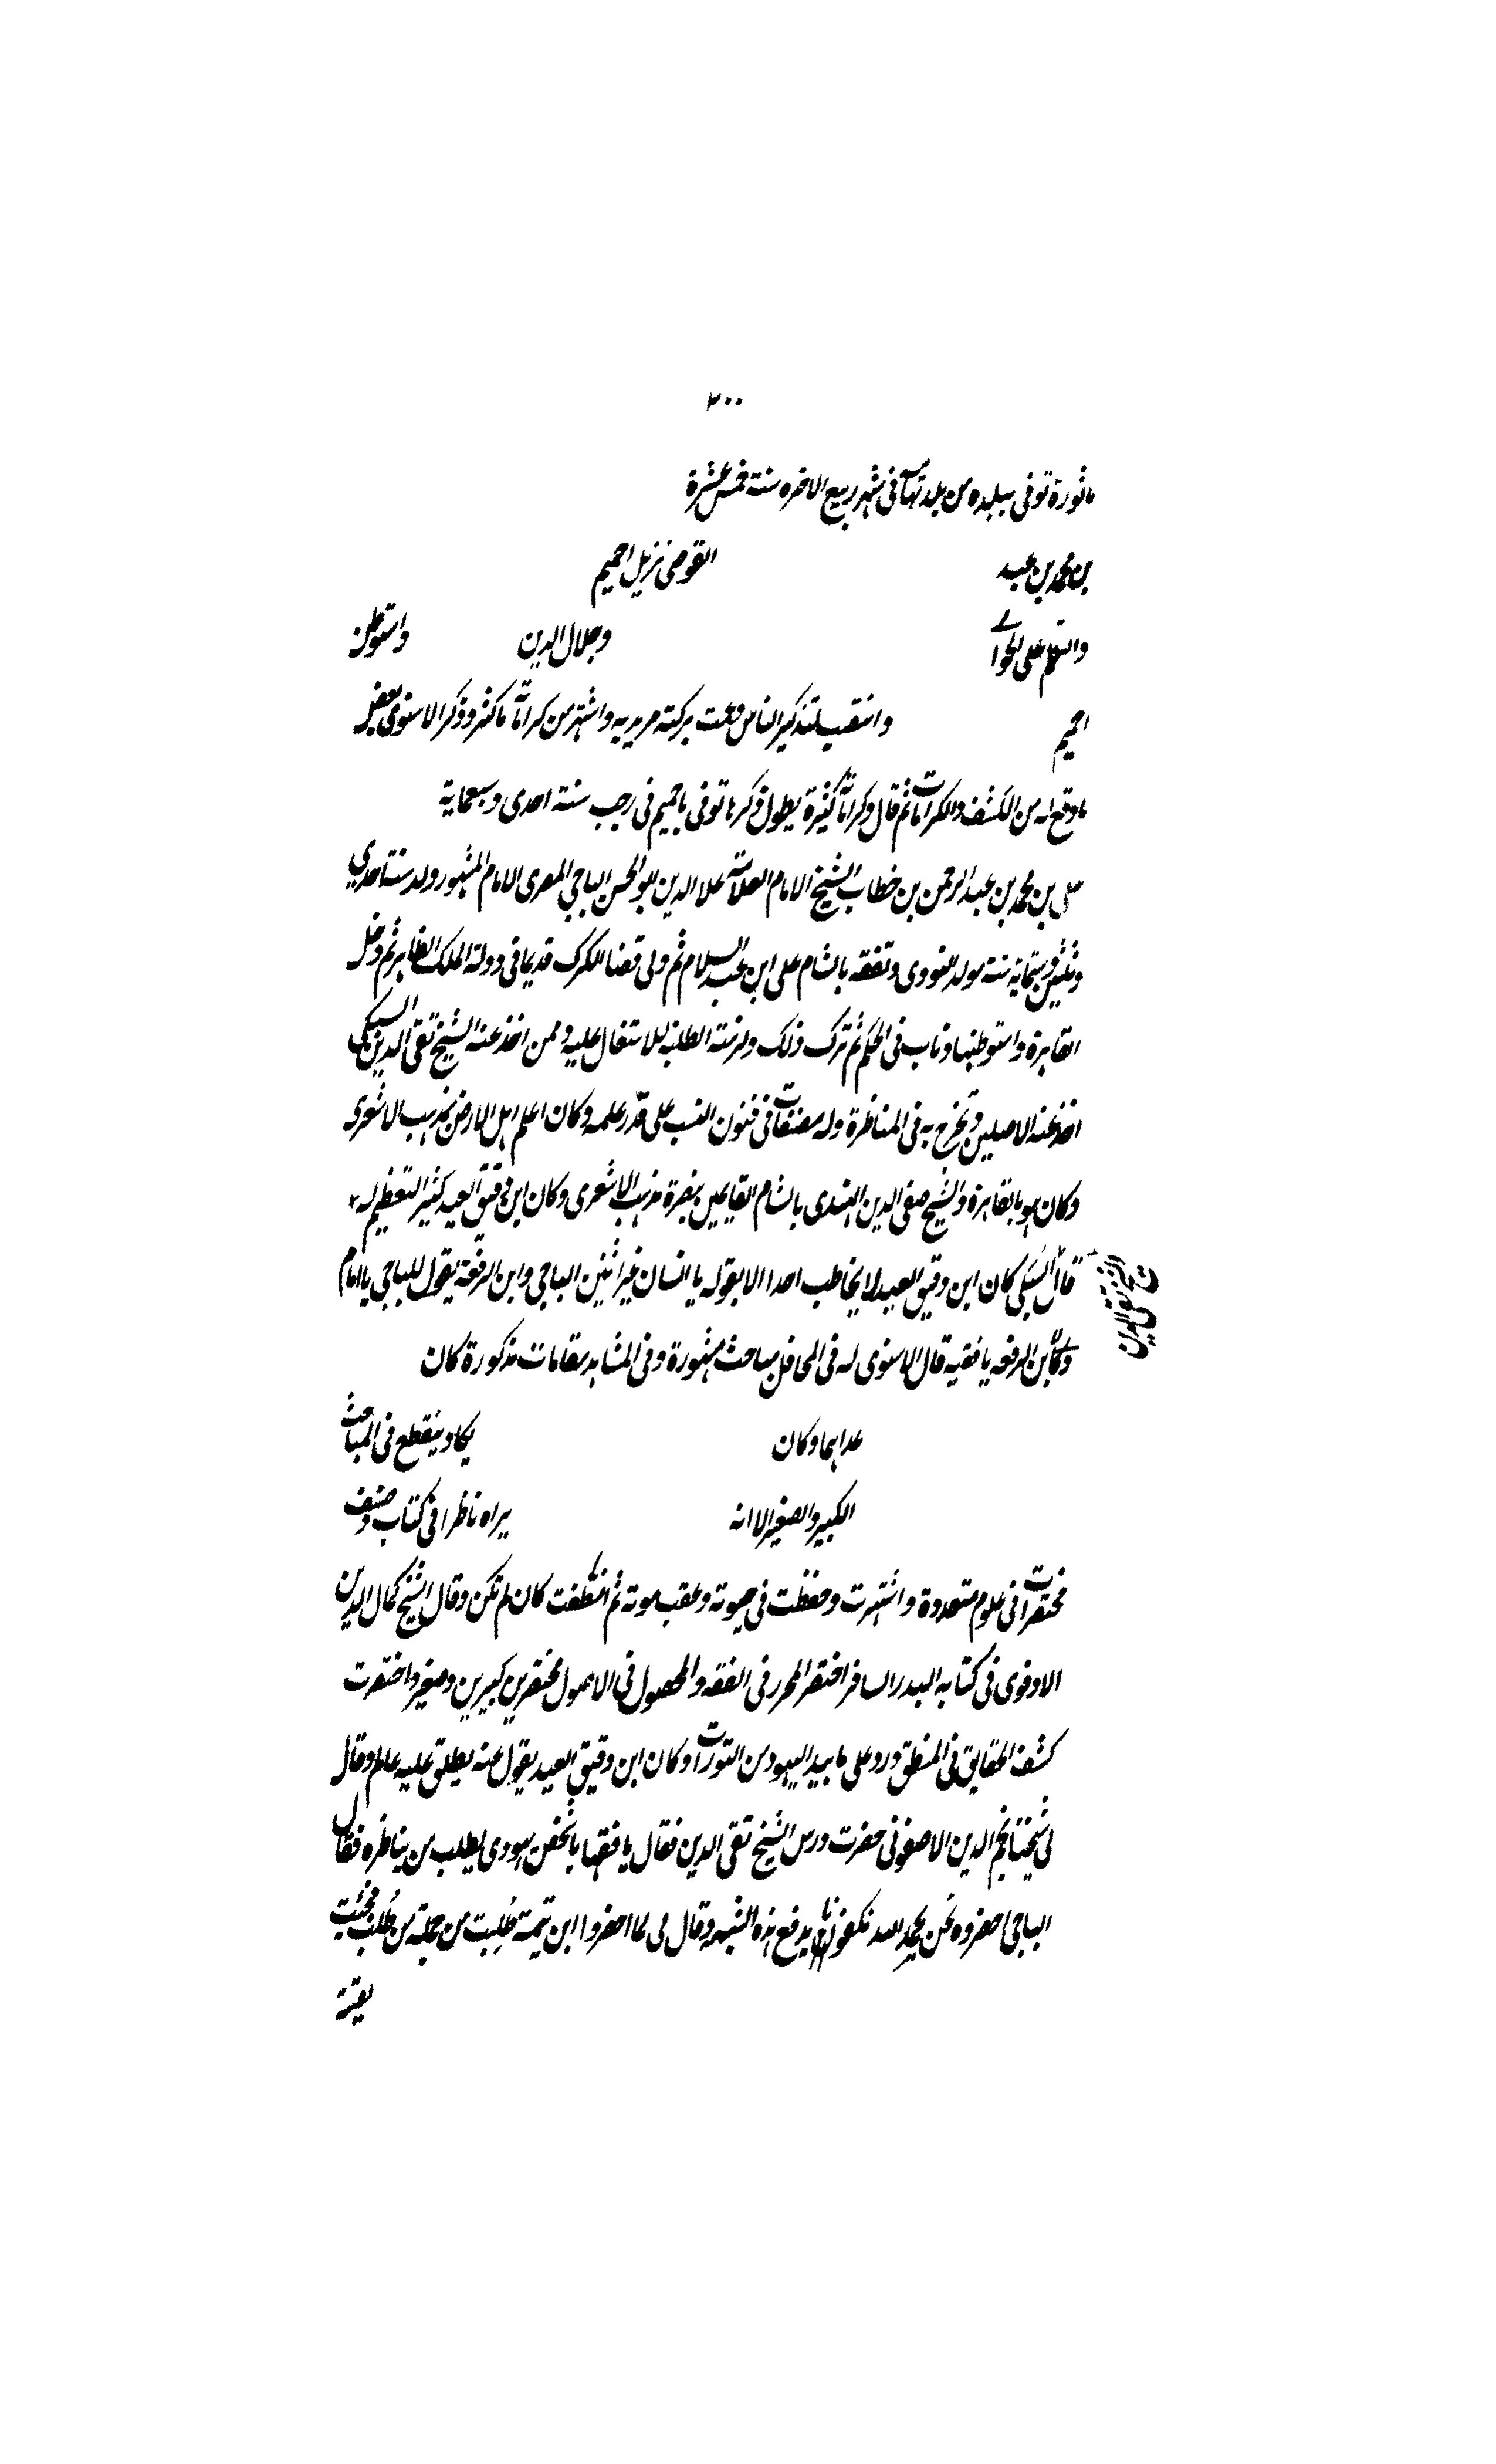 ٢٠٠
ماثورة توفى ببلده من بلد تهآ فى شهر ربيع الاخره سنة خمس عشرة
بن محمد بن عبد القوصى نزيل اخميم
والتهم على وجلال الدين واستوطن
اخميم وانتصب لتذكير الناس وعمت بركته مريديه واشتهر من كراماته ما كثر وذكر الاسنوى بعض
ما وقع له من الكشف والكرامات ثم قال وكراماته كثيرة يطول ذكرها توفى باخميم فى رجب سنة احدى وسبعماية
على بن محمد بن عبد الرحمن بن خطاب الشيخ الامام العلامة علا الدين ابو الحسن الباجى المصرى الامام المشهور ولد سنة احدي
وثلثين وستماية سنة مولد النووى وتفقه بالشام على ابن عبد السلام ثم ولى قضا الكرك قديما فى دولة الملك الظاهر ثم دخل
القاهرة واستوطنها وناب فى الحكم ثم ترك ذلك ولزمته الطلبة للاشتغال عليه وممن اخذ عنه الشيخ تقى الدين السبكى
اخذ عنه الاصلين وتخرج به فى المناظرة وله مصنفات فى فنون النسب على قدر علمه وكان اعلم اهل الارض بمذهب الاشعرى
وكان هو بالقاهرة والشيخ صفى الدين الهندى بالشام القايمين بنصرة مذهب الاشعرى وكان ابن دقيق العيد كثير التعظيم له
قال السبكى كان ابن دقيق العيد لا يخاطب احدا الا بقوله يا انسان غير اثنين الباجى وابن الرفعة يقول للباجى يا امام
الشيخ تقى الدين
ولابن الرفعه يا فقيه قال الاسنوى له فى المحافل مباحث مشهورة وفى المشاهد مقامات مذكورة كان
عداهما وكان يكاد ينقطع فى المباحث
الكبير والصغير الا انه يراه ناظرا فى كتاب وصنف
مختصرات فى علوم متعددة واشتهرت وحفظت فى حيوته وعقب موته ثم انطفت كان لم تكن وقال الشيخ كمال الدين
الادفوى فى كتابه البدر السافر اختصر المحرر فى الفقه والمحصول فى الاصول مختصرين كبيرين وصغير واختصرت
كشف الحقايق فى المنطق ورد على ما بيد اليهود من التورات وكان ابن دقيق العيد يقول عنه يطلق عليه عالم وقال
لى شيخنا نجم الدين الاصفونى حضرت درس الشيخ تقى الدين فقال يا فقها شخص يهودى يطلب من يناظره فقال
الباجى احضروه نحن بحمد الله يدفع هذه الشبهه وقال لى لما احضروا ابن تيمية طلبت من جملة من طلب فجئت
بقية